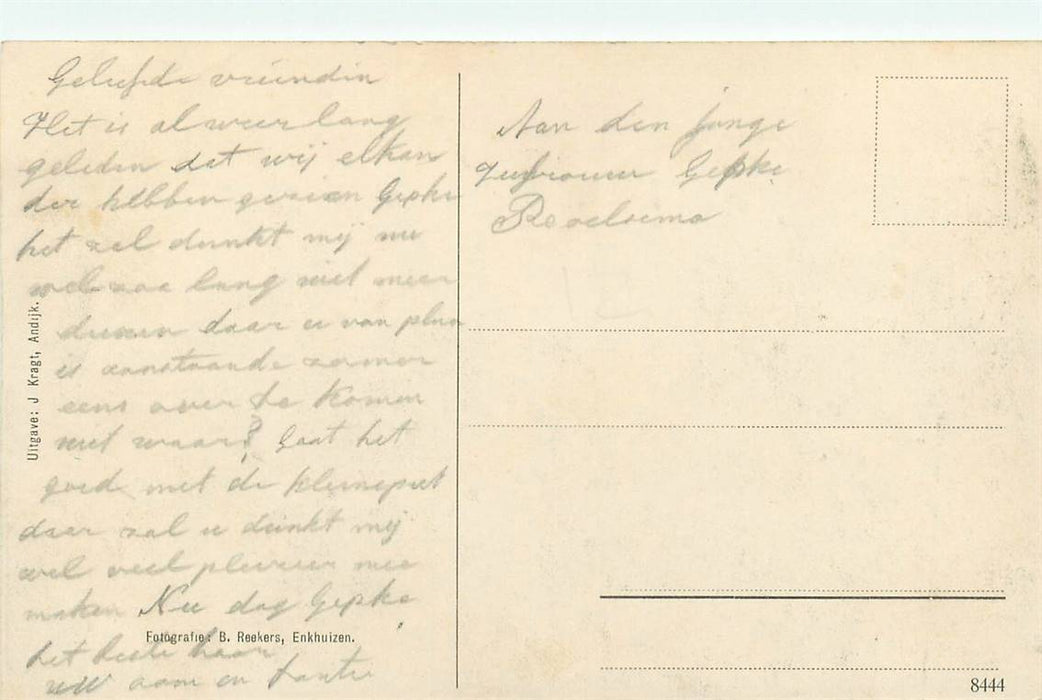 Geliefde vriendin
Het is al weer lang
geleden dat wij elkan
der hebben gezien Gepke
het zal dunkt mij nu
wel zoo lang niet meer
duren daar u van plan
is aanstaande zomer
eens over te komen
niet waar? Gaat het
goed met de kleinepiet
daar zal u dunkt mij
wel veel plezier mee
maken Nu dag Gepke
het beste haar
uw oom en tante
Uitgave: J Kragt, Andijk.
Fotografie: B. Reekers, Enkhuizen.
Aan den jonge
Jufvrouw Gepke
8444